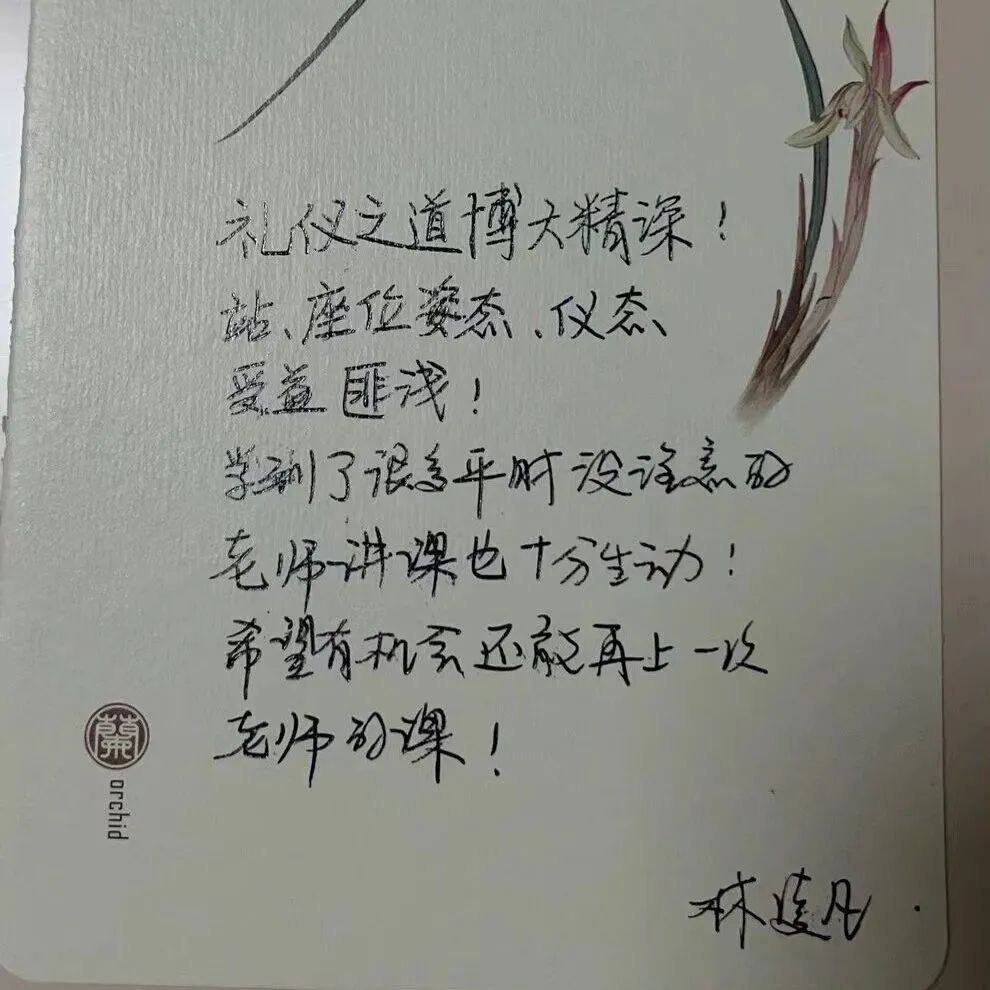 礼仪之道博大精深!
站、座位姿态、仪态
受益匪浅!
学到了很多平时没注意的
老师讲课也十分生动!
希望有机会还能再上一次
老师的课!
蘭
orchid
林